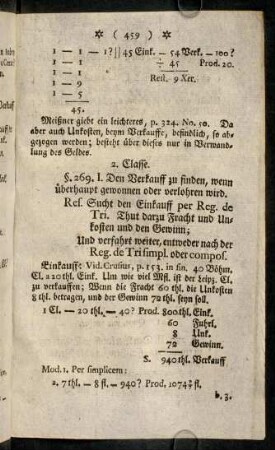 * ( 459 ) *
1 — 1 — 1? || 45 Eink. — 54 Verk. — 100?
1 — 1 ÷ 45 Prod. 20.
1 — 1
1 — 1 Rest. 9 Xer.
1 — 9
1 — 5
45.
Meißner giebt ein leichteres, p. 324. No. 50. Da
aber auch Unkosten, beym Verkauffe, befindlich, so ab-
gezogen werden; bestehet über dieses nur in Verwand-
lung des Geldes.
2. Classe.
§. 269. I. Den Verkauff zu finden, wenn
überhaupt gewonnen oder verlohren wird.
Res. Sucht den Einkauff per Reg. de
Tri. Thut darzu Fracht und Un-
kosten und den Gewinn;
Und verfahrt weiter, entweder nach der
Reg. de Tri simpl. oder compos.
Einkaufft Vid. Crusius, p. 153. in fin. 40 Böhm.
Cl. a 20 thl. Eink. Um wie viel Mßl. ist der leipz. Cl.
zu verkauffen; Wenn die Fracht 60 thl. die Unkosten
8 thl. betragen, und der Gewinn 72 thl. seyn soll.
1 Cl. — 20 thl. — 40? Prod. 800 thl. Eink.
60 Fuhrl.
8 Unk.
72 Gewinn.
S. 940 thl. Verkauff
Mod. 1. Per simplicem:
2. 7 thl. — 8 fl. — 940? Prod. 1074 2/7 fl.
b. 3.